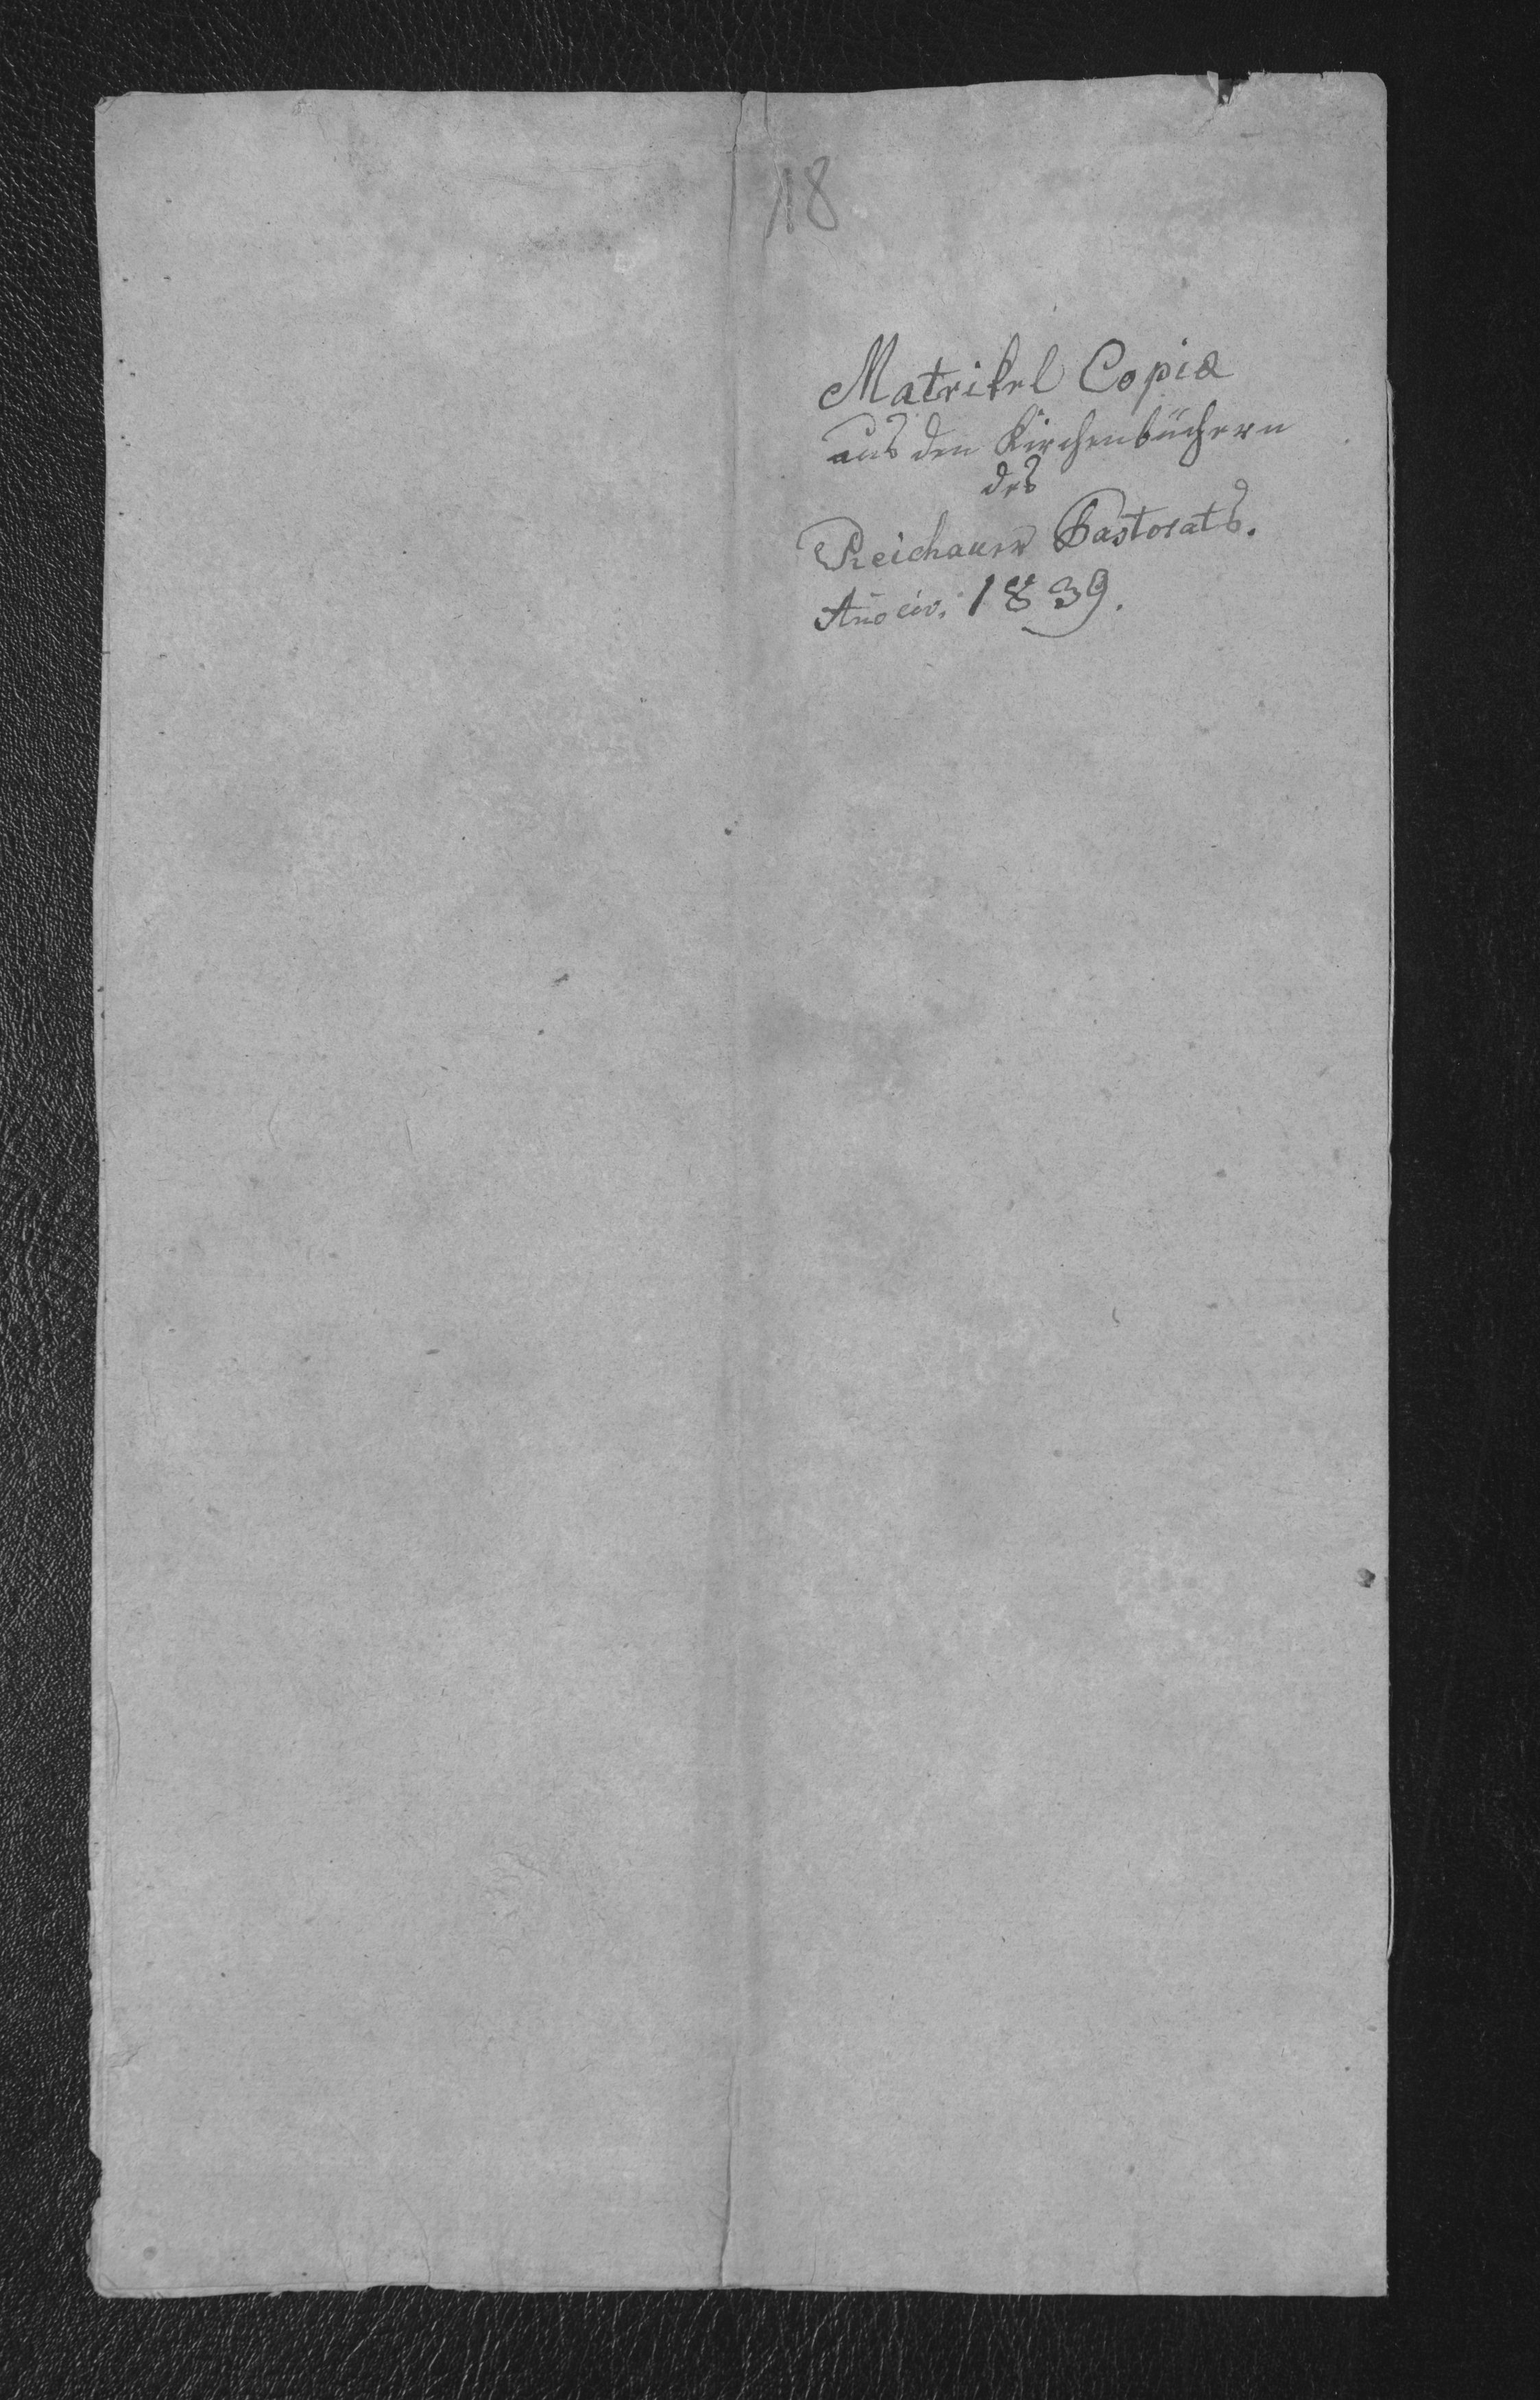 18
Matrikel Copia
aus den Kirchenbüchern
des
Reichauer Pastorats.
Año civ. 1839.